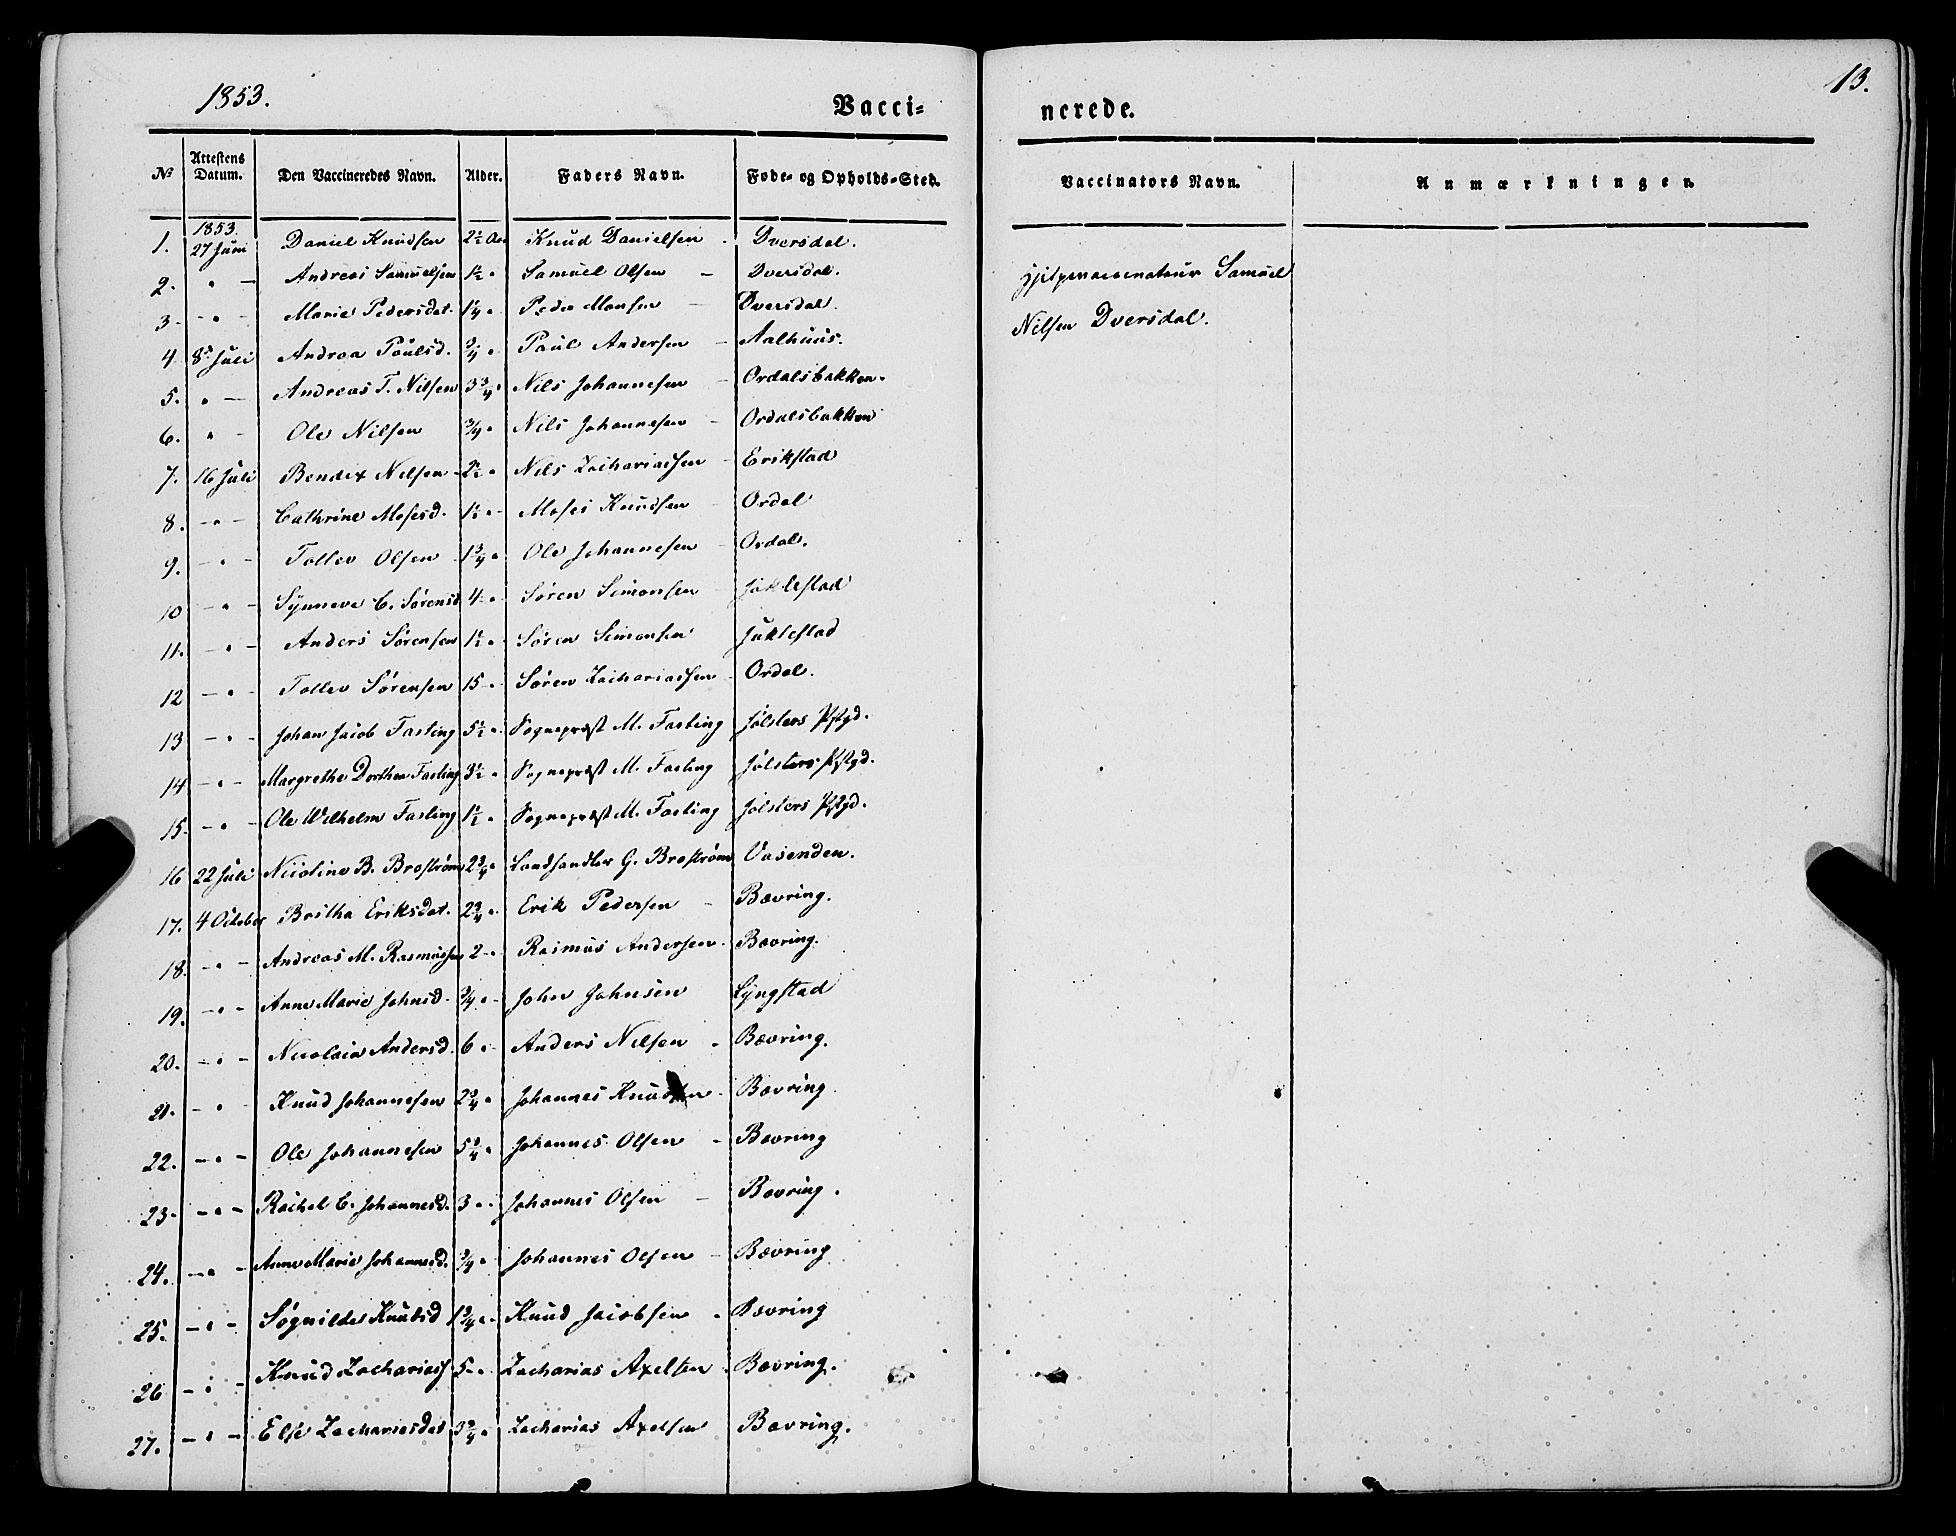 1853.
Vacci-
nerede.
13.
No Attestens Datum. Den Vaccineredes Navn. Alder. Faders Navn. Føde- og Opholds-Sted. Vaccinators Navn. Anmærkninger.
1. 1853. 27 Juni Daniel Knudsen 2½ Aar Knud Danielsen - Dversdal.
2. " - Andreas Samuelsen 1½ " Samuel Olsen - Dversdal. Hjelpevaccinateur Samuel
3 - " - Marie Pedersdat. 1¼ " Peder Monsen - Dversdal. Nilsen Dversdal.
4 8de Juli Andrea Poulsd. ¾ " Paul Andersen - Aalhuus.
5. " - Andreas T. Nilsen 3¾ " Nils Johannesen - Ordalsbakken.
6. " - Ole Nilsen ¾ " Nils Johannesen - Ordalsbakken
7. 16 Juli Bendix Nilsen - 2½ " Nils Zachariassen - Erikstad
8. - " - Cathrine Mosesd. 1½ " - Moses Knudsen - Ordal
9. - " - Tollev Olsen 1¾ " Ole Johannesen - Ordal.
10 - " - Synneve C. Sørensd 4 - " Søren Simonsen - Juklestad
11. - " - Anders Sørensen 1½ " Søren Simonsen Juklestad
12 - " - Tollev Sørensen 15 - " Søren Zachariassen - Ordal.
13 - " - Johan Jacob Fasting 5½ " Sognepræst M. Fasting Jølsters Pstgd.
14 - " - Margrethe Dorthea Fasting 3½ " Sognepræst M. Fasting Jølsters Pstgd.
15. - " - Ole Wilhelm Fasting 1½ " Sognepræst M. Fasting Jølsters Pstgd.
16 22 Juli Nicoline B. Brostrøm 2¾ " Landhandler G. Brostrøm Vasenden.
17. 4 October Britha Eriksdat. 2¾ " Erik Pedersen - Bævring.
18. - " - Andreas M. Rasmussen 2 - " Rasmus Andersen - Bævring.
19. - " - Anne Marie Johnsd. ¾ " - John Johnsen Lyngstad
20. - " - Nicolaia Andersd. 6 " - Anders Nilsen - Bævring.
21. - " Knud Johannesen 2¾ " Johannes Knudsen - Bævring
22. - " - Ole Johannesen 5¼ " Johannes Olsen - Bævring
23. - " - Rachel C. Johannesd. 3 " - Johannes Olsen - Bævring.
24. - " - Anne Marie Johannesd. ¾ " - Johannes Olsen - Bævring
25. - " - Søgnilde Knudsd 1¾ " - Knud Jacobsen - Bævring
26 - " - Knud Zachariass 5 - " - Zacharias Axelsen - Bævring.
27. - " - Else Zachariasdat 3¾ " Zacharias Axelsen Bævring.